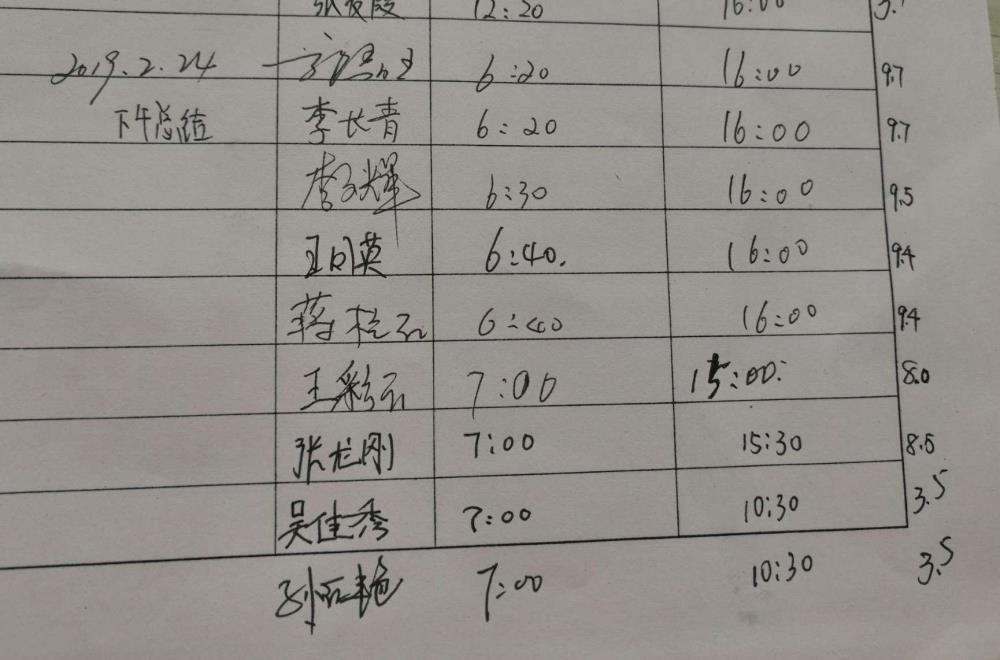 12:20 16:00
2019.2.24 6:20 16:00 9.7
下午总结 李长青 6:20 16:00 9.7
李辉 6:30 16:00 9.5
王日英 6:40. 16:00 9.4
蒋桂云 6:40 16:00 9.4
王彩云 7:00 15:00 8.0
张龙刚 7:00 15:30 8.5
吴佳秀 7:00 10:30 3.5
7:00 10:30 3.5